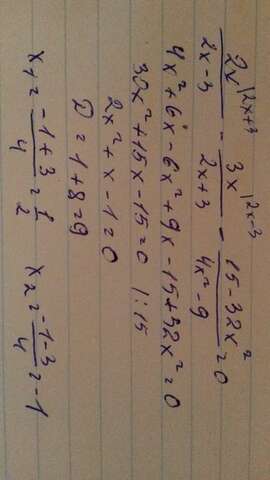 2x/(2x-3) |2x+3 - 3x/(2x+3) |2x-3 - (15-32x²)/(4x²-9) = 0
4x²+6x-6x²+9x-15+32x²=0
30x²+15x-15=0 |:15
2x²+x-1=0
D=1+8=9
x₁=(-1+3)/4=1/2 x₂=(-1-3)/4=-1